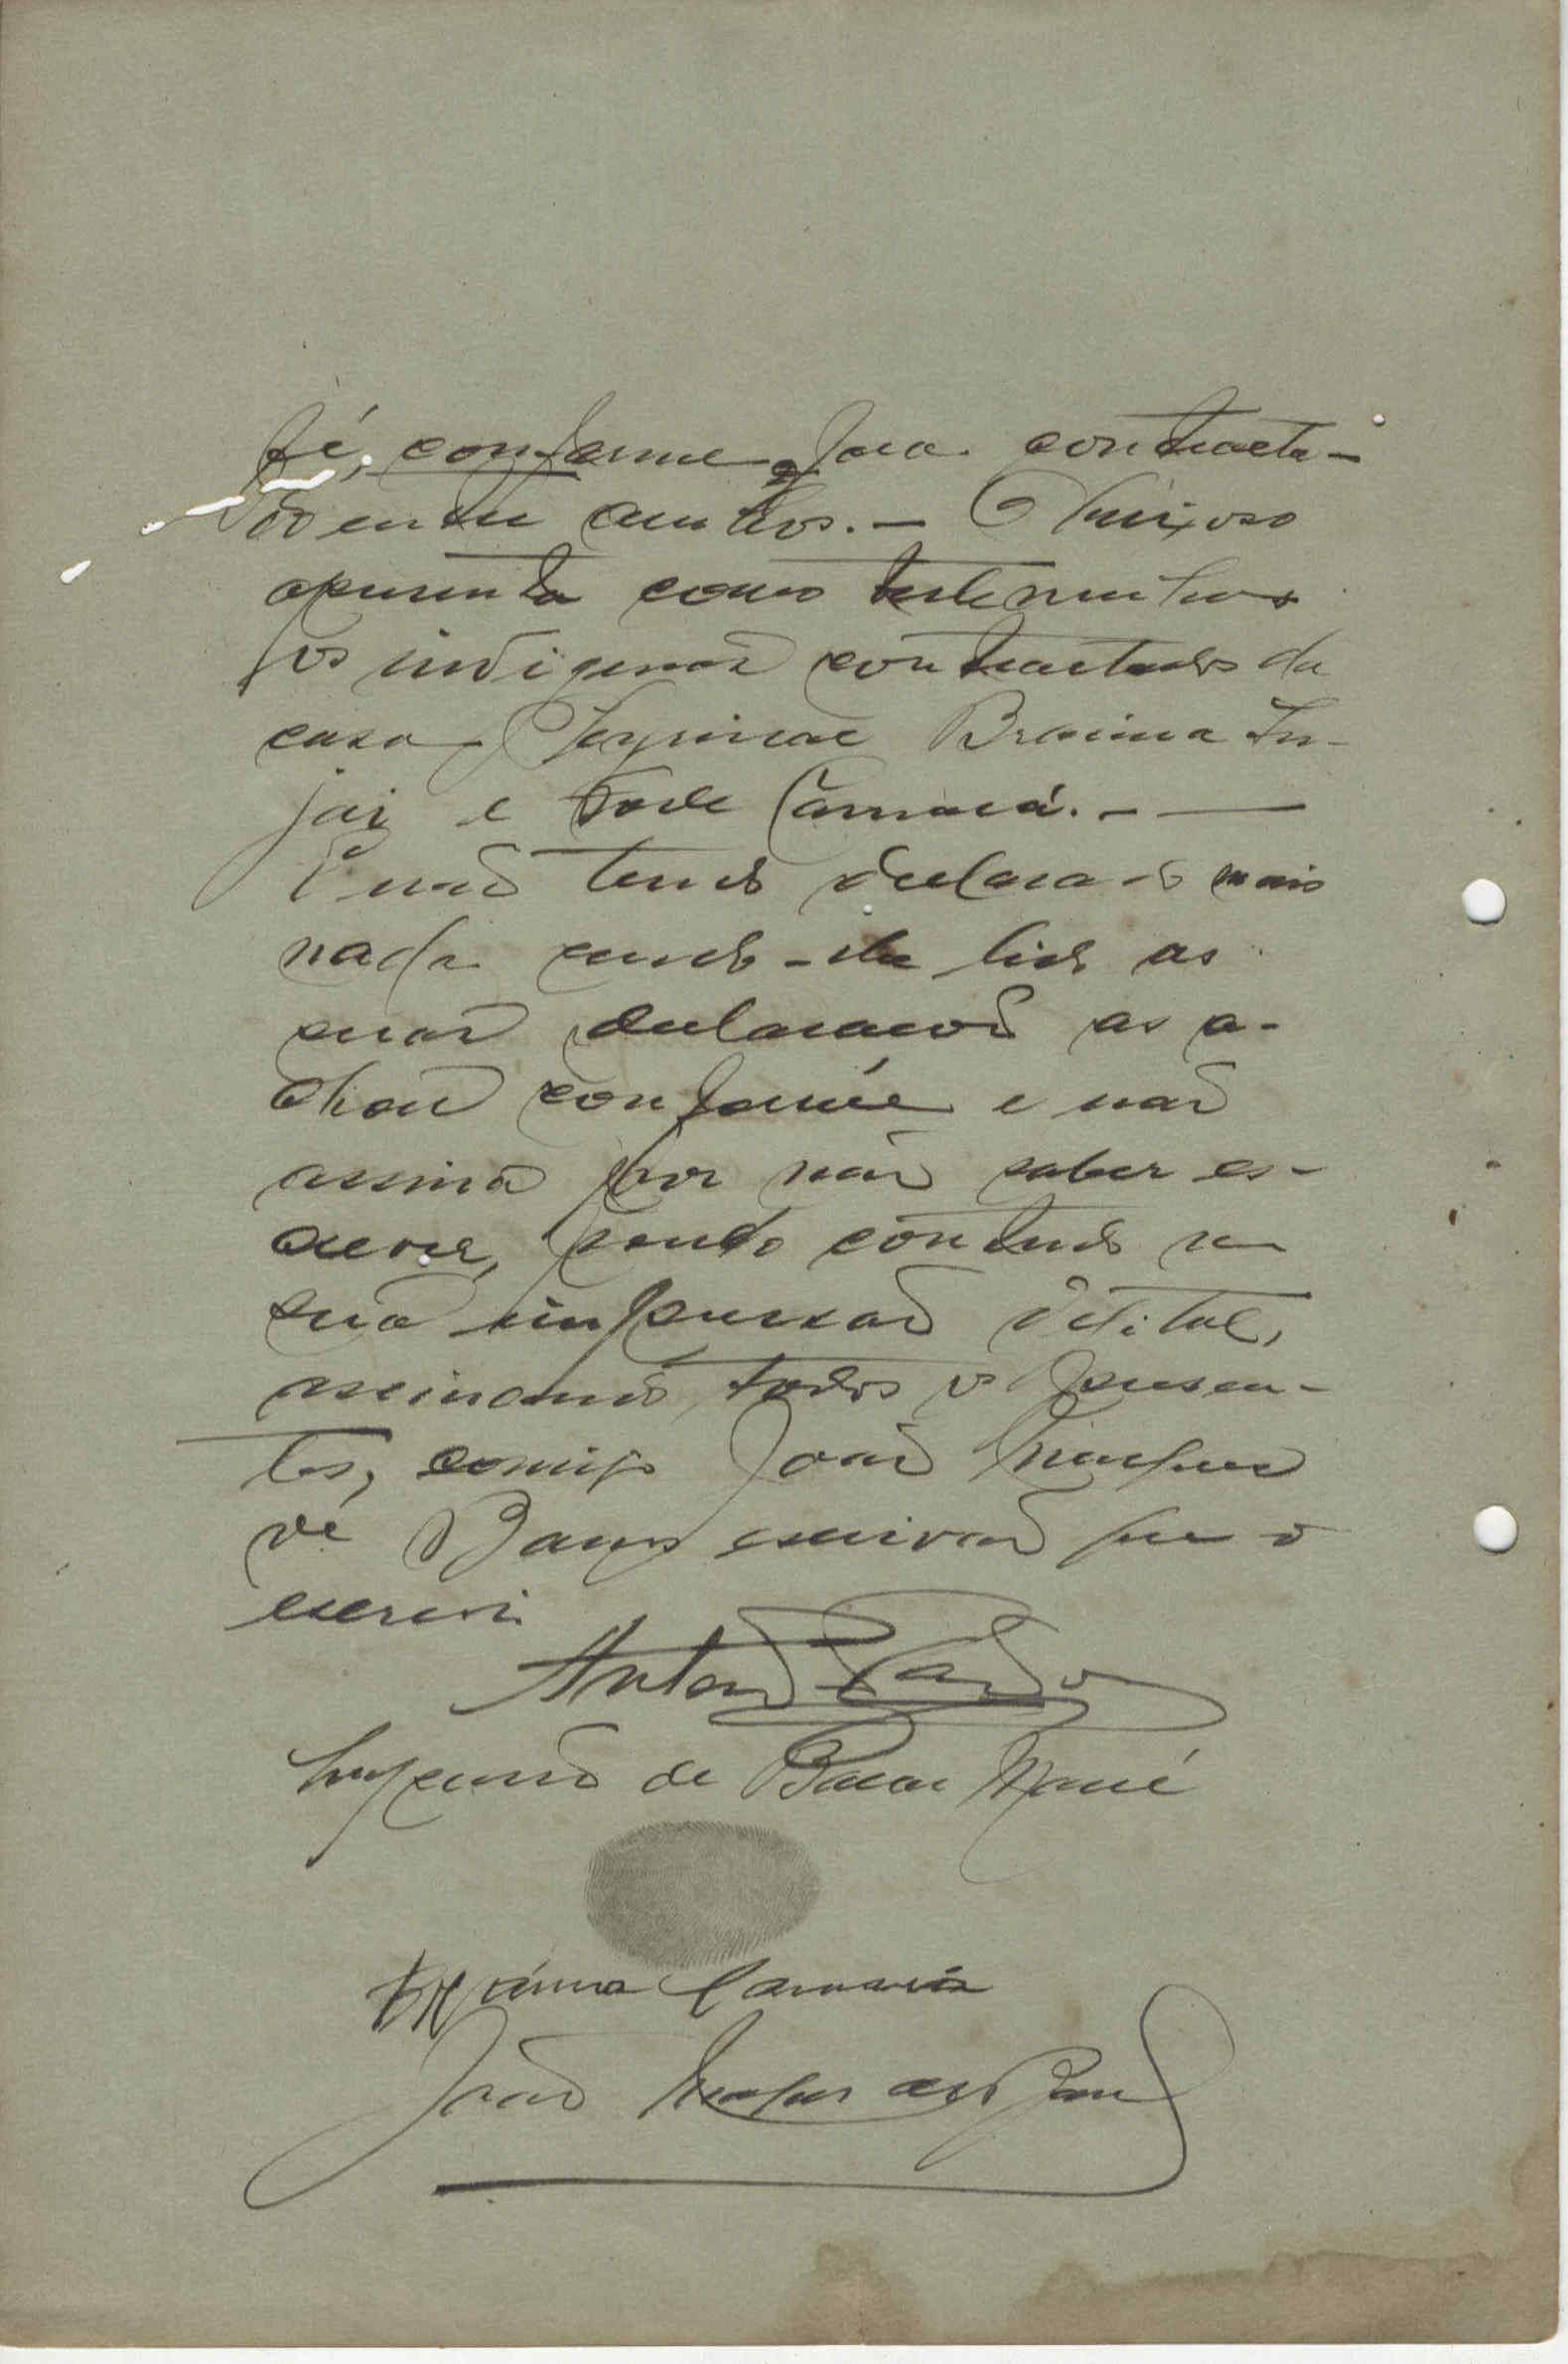 fé, conforme fora contracta-
do entre ambos. — O queixoso
apresenta como testemunhas
os indigenas contractados da
casa Braima In-
jai e Sore Camará. —
E não tendo declarado mais
nada sendo-lhe lido as
suas declaracoes as a-
chou conforme e não
assina por não saber es-
crever, pondo contudo a
sua impressão digital,
assinando todos os presen-
tes, comigo João Marques
de Barros escrivão que o
escrevi.
Antonio
Impressão de Bacar Mané
Camará
João Marques de Barros